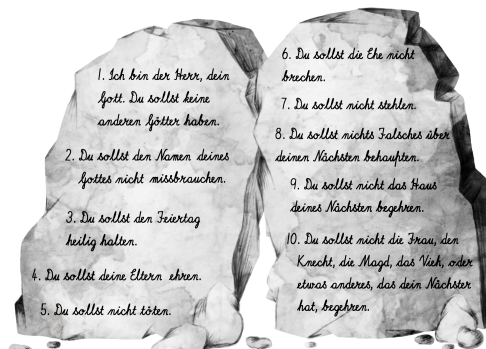 1. Ich bin der Herr, dein
Gott. Du sollst keine
anderen Götter haben.
2. Du sollst den Namen deines
Gottes nicht missbrauchen.
3. Du sollst den Feiertag
heilig halten.
4. Du sollst deine Eltern ehren.
5. Du sollst nicht töten.
6. Du sollst die Ehe nicht
brechen.
7. Du sollst nicht stehlen.
8. Du sollst nichts Falsches über
deinen Nächsten behaupten.
9. Du sollst nicht das Haus
deines Nächsten begehren.
10. Du sollst nicht die Frau, den
Knecht, die Magd, das Vieh, oder
etwas anderes, das dein Nächster
hat, begehren.